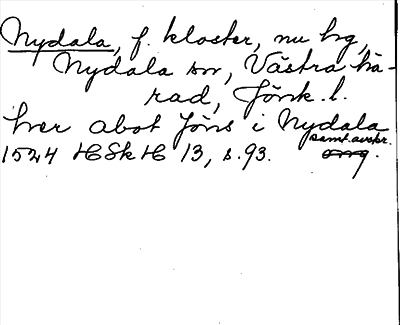 Nydala, f. kloster, nu hg,
Nydala sn, Västra hä-
rad, Jönk. l.
hver abot Jöns i Nydala
samt. avskr.
1524 HSkH 13, s. 93. orig.